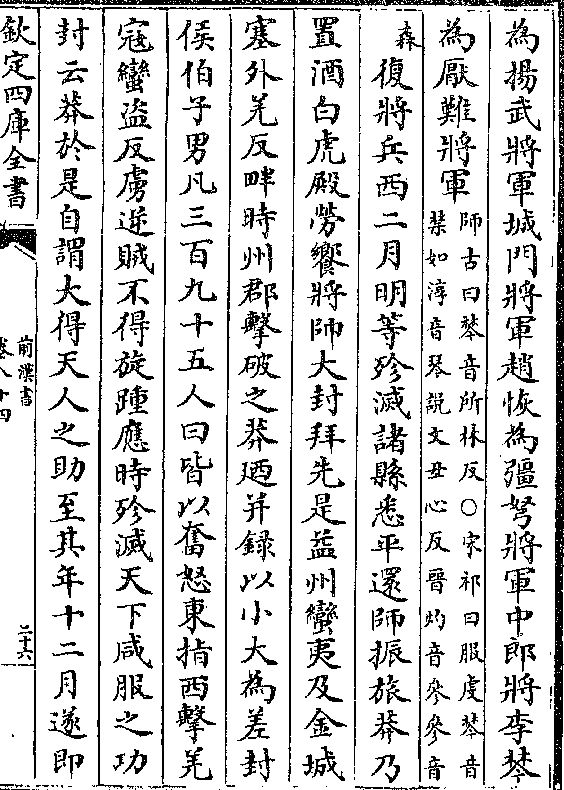 為揚武將軍城門將軍趙恢為彊弩將軍中郎將李棽
為厭難將軍
師古曰棽音所林反○宋祁曰服虔棽音
禁如淳音琴說文丑心反晉灼音參參音
森
復將兵西二月明等殄滅諸縣悉平還師振旅莽乃
置酒白虎殿勞饗將帥大封拜先是益州蠻夷及金城
塞外羌反畔時州郡擊破之莽廼并録以小大為差封
侯伯子男凡三百九十五人曰皆以奮怒東指西擊羌
寇蠻盜反虜逆賊不得旋踵應時殄滅天下咸服之功
封云莽於是自謂大得天人之助至其年十二月遂即
欽定四庫全書
前漢書
卷八十四
二十六